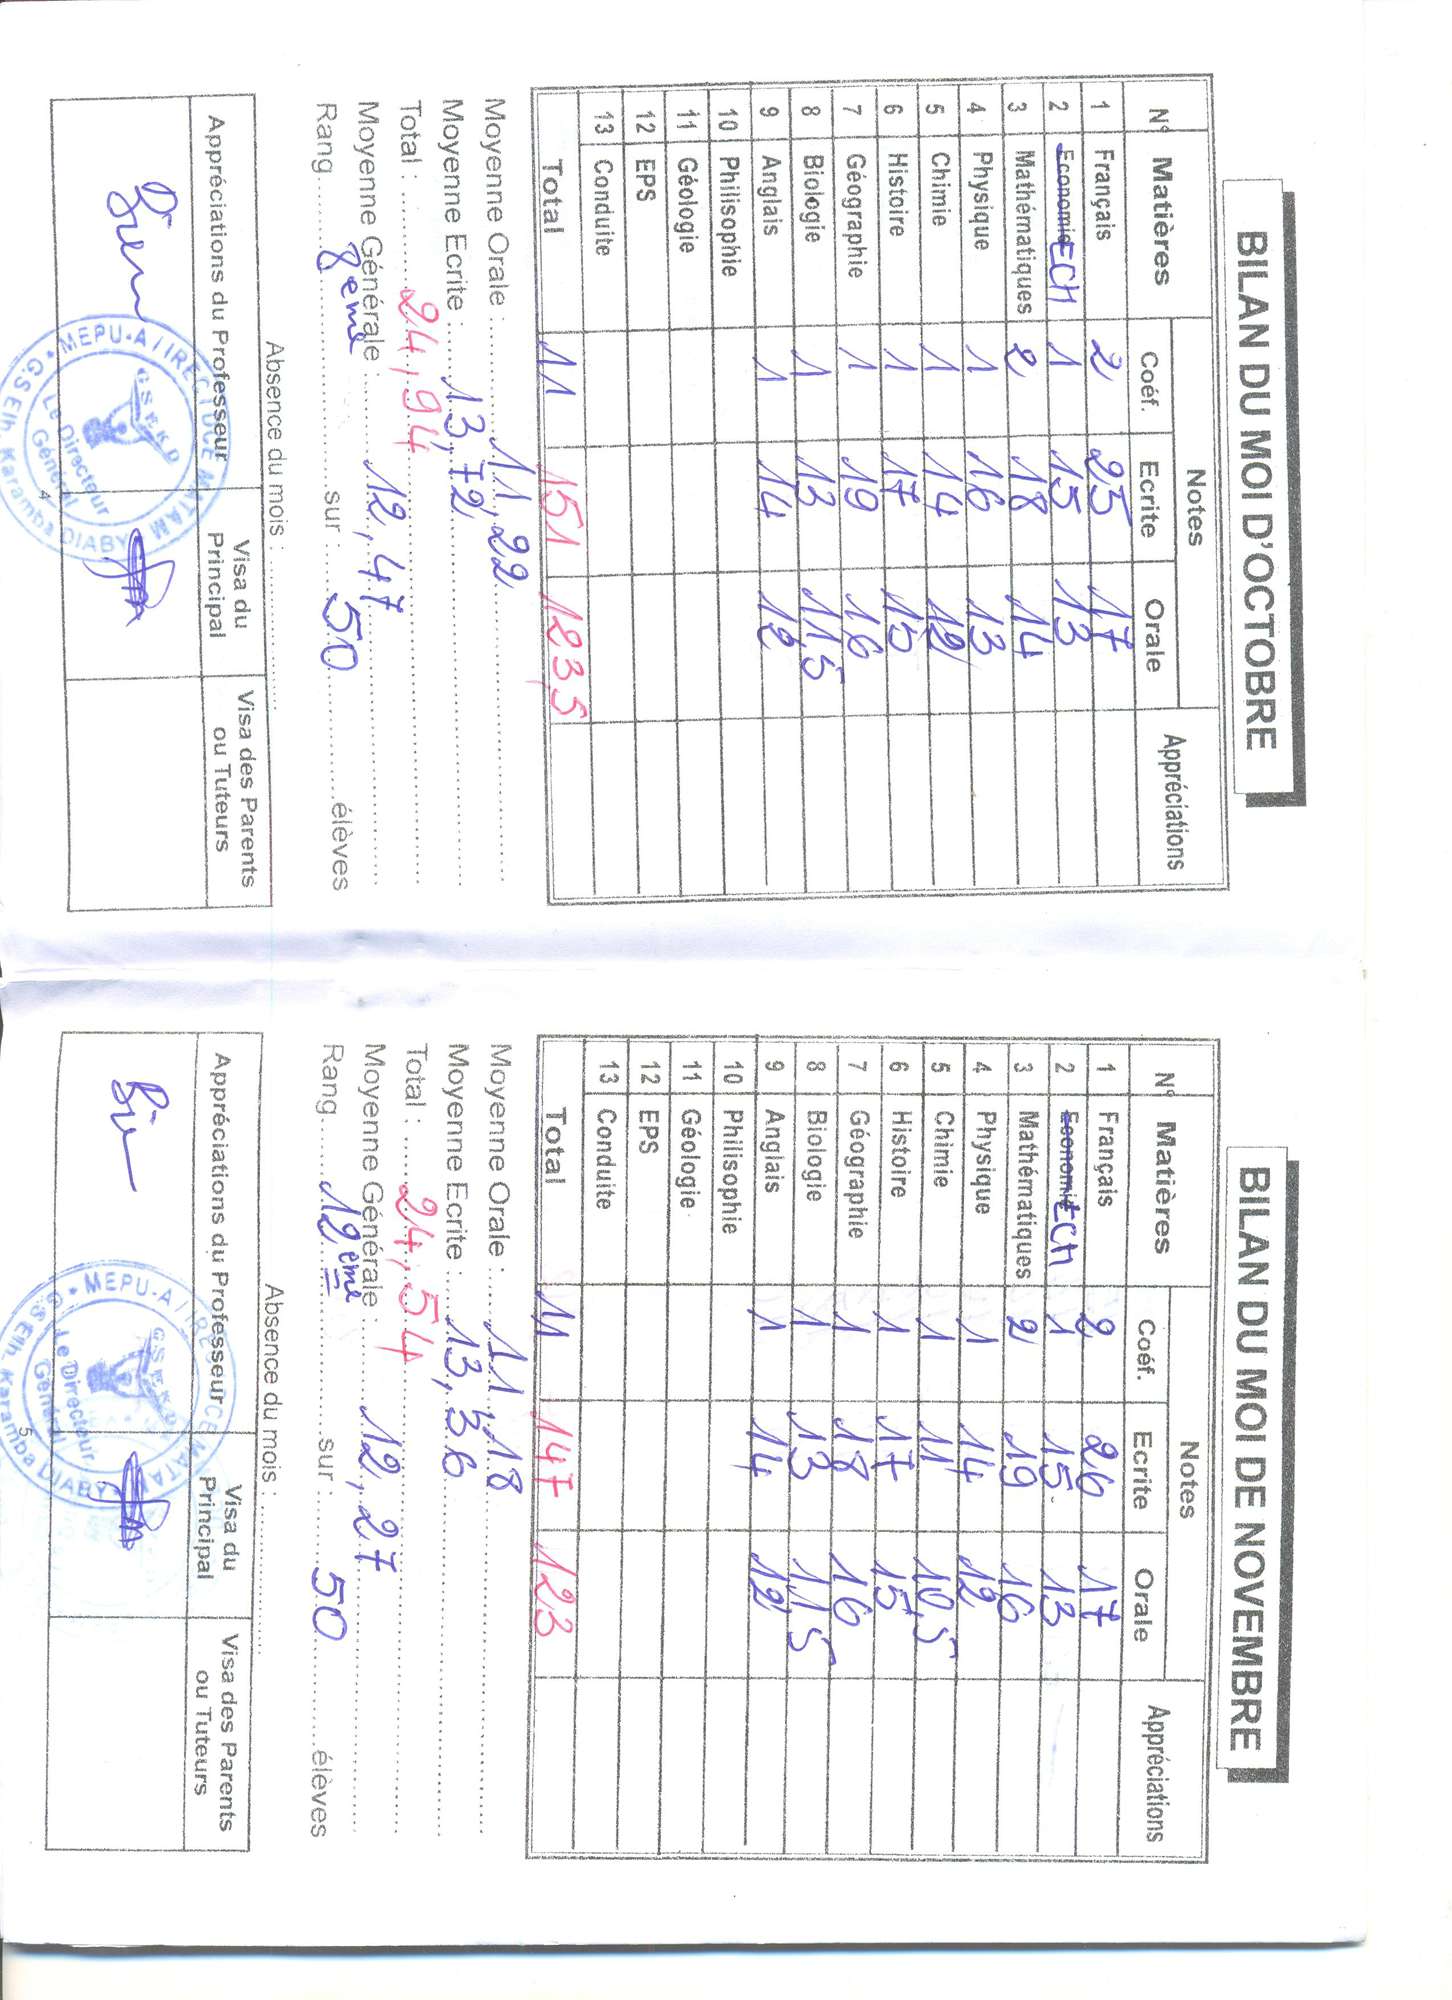 BILAN DU MOI D'OCTOBRE
N° Matières Notes Appréciations
Coéf. Ecrite Orale
1 Français 2 25 17
2 Economie ECM 1 15 13
3 Mathématiques 2 18 14
4 Physique 1 16 13
5 Chimie 1 14 12
6 Histoire 1 17 15
7 Géographie 1 19 16
8 Biologie 1 13 11,5
9 Anglais 1 14 12
10 Philisophie
11 Géologie
12 EPS
13 Conduite
Total 11 151 123,5
Moyenne Orale : 11,22
Moyenne Ecrite : 13,72
Total : 24,94
Moyenne Générale : 12,47
Rang 8eme sur : 50 élèves
Absence du mois :
Appréciations du Professeur Visa du Principal Visa des Parents ou Tuteurs
Bien
MEPU-A / IRE / DCE MATAM
G.S Elh. Karamba DIABY
GSEKD
Le Directeur
Général
4
BILAN DU MOI DE NOVEMBRE
N° Matières Notes Appréciations
Coéf. Ecrite Orale
1 Français 2 26 17
2 Economie ECM 1 15 13
3 Mathématiques 2 19 16
4 Physique 1 14 12
5 Chimie 1 11 10,5
6 Histoire 1 17 15
7 Géographie 1 18 16
8 Biologie 1 13 11,5
9 Anglais 1 14 12
10 Philisophie
11 Géologie
12 EPS
13 Conduite
Total 11 147 123
Moyenne Orale : 11,18
Moyenne Ecrite : 13,36
Total : 24,54
Moyenne Générale : 12,27
Rang 12eme sur : 50 élèves
Absence du mois :
Appréciations du Professeur Visa du Principal Visa des Parents ou Tuteurs
Bien
MEPU-A / IRE / DCE MATAM
G.S Elh. Karamba DIABY
GSEKD
Le Directeur
Général
5